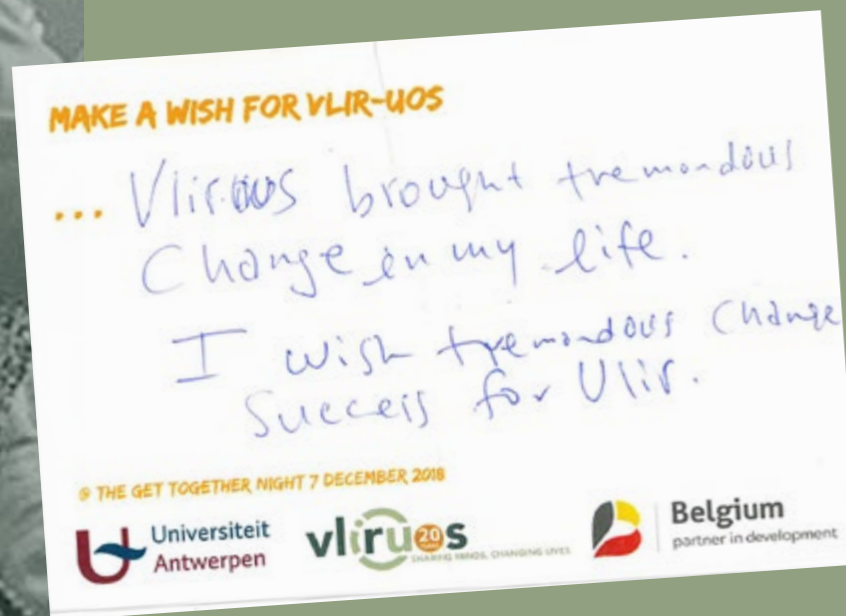 MAKE A WISH FOR VLIR-UOS
... Vliruos brought tremondous
Change in my life.
I wish tremondous Change
Success for Vlir.
@ THE GET TOGETHER NIGHT 7 DECEMBER 2018
Universiteit
Antwerpen
vliruos
20
SHARING MINDS, CHANGING LIVES
Belgium
partner in development